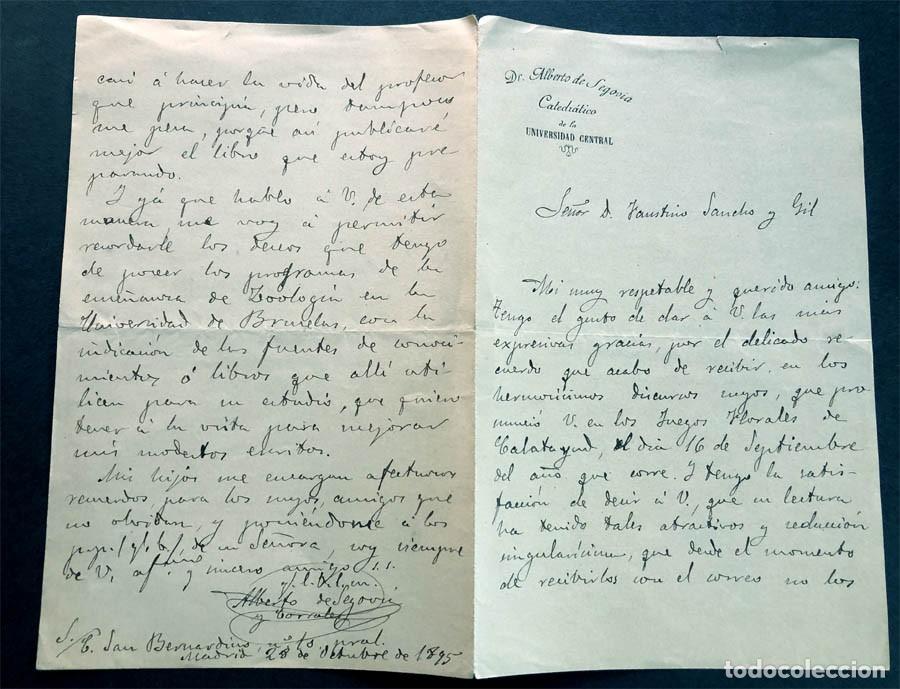 Dr. Alberto de Segovia
Catedrático
de la
UNIVERSIDAD CENTRAL
Señor D. Faustino Sancho y Gil
Mi muy respetable y querido amigo:
Tengo el gusto de dar á V. las mas
expresivas gracias, por el delicado re
cuerdo que acabo de recibir en los
hermosísimos discursos suyos, que pro
nunció V. en los Juegos Florales de
Calatayud, el dia 16 de Septiembre
del año que corre. Y tengo la satis-
facción de decir á V, que su lectura
ha tenido tales atractivos y seducción
singularísima, que desde el momento
de recibirlos con el correo no los
casi á hacer la vida del profesor
que principia, pero tampoco
me pesa, porque asi publicaré
mejor el libro que estoy pre
parando.
Y yá que hablo á V. de esta
manera me voy á permitir
recordarle los deseos que tengo
de poseer los programas de la
enseñanza de Zoología en la
Universidad de Bruselas, con la
indicación de las fuentes de conoci
mientos ó libros que allí uti
licen para su estudio, que quiero
tener á la vista para mejorar
mis modestos escritos.
Mis hijos me encargan afectuosos
recuerdos para los suyos, amigos que
no olvidan, y poniéndome á los
de su Señora, soy siempre
de V. af.mo y sincero amigo s.s.
Alberto de Segovia
y Corrales
S/C. San Bernardino nº 10 pral.
Madrid 28 de Octubre de 1895
todocoleccion